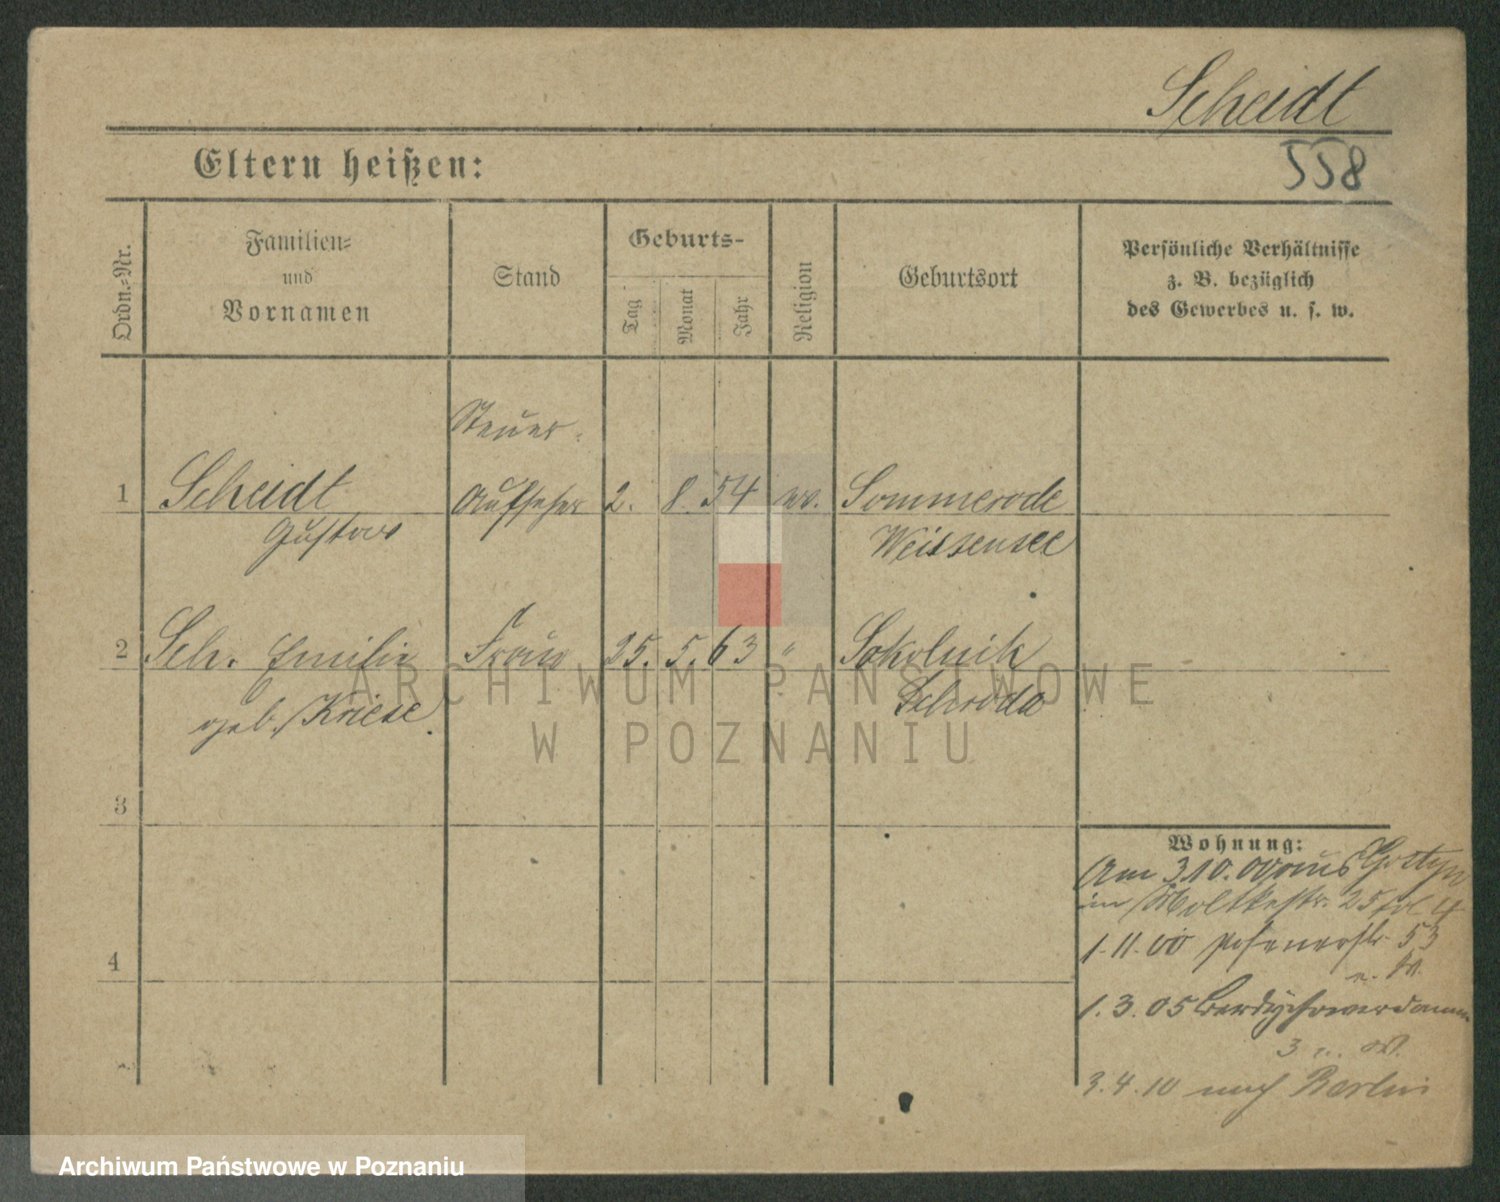 Scheidt
558
Eltern heißen:
Ordn.-Nr.
Familien-
und
Vornamen
Stand
Geburts-
Tag
Monat
Jahr
Religion
Geburtsort
Persönliche Verhältnisse
z. B. bezüglich
des Gewerbes u. s. w.
Steuer-
1 Scheidt Aufseher 2. 8. 54 ev. Sommerode
Gustav Weissensee
2 Sch. Emilie Frau 25. 5. 63 " Sokolnik
geb. Kriese Schroda
3
4
Wohnung:
Am 3.10.00 aus Gostyn
in Moltkestr. 25
1.11.00 Posenerstr. 53
1.3.05 Berdychowerdamm
3
3.4.10 nach Berlin
ARCHIWUM PAŃSTWOWE
W POZNANIU
Archiwum Państwowe w Poznaniu